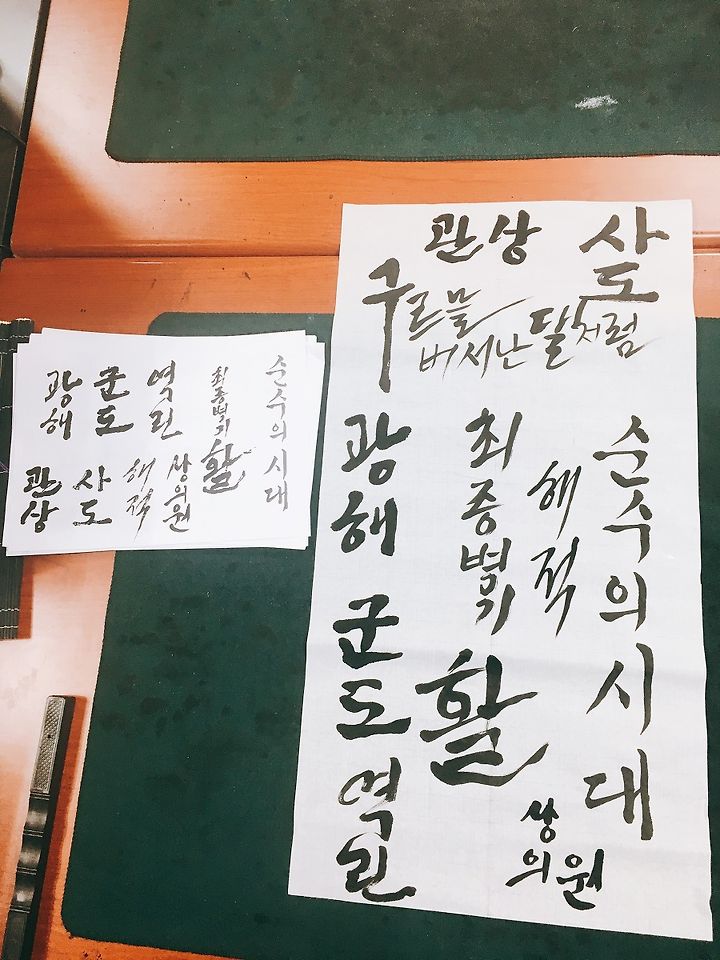 광해
군도
역린
최종병기
활
순수의시대
관상
사도
해적
상의원
관상
사도
구르믈
버서난 달처럼
광해
최종병기
활
해적
순수의시대
군도
역린
상의원